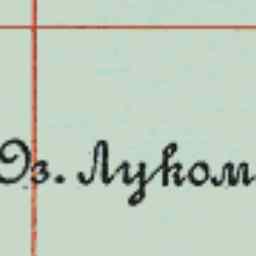 Оз. Луком